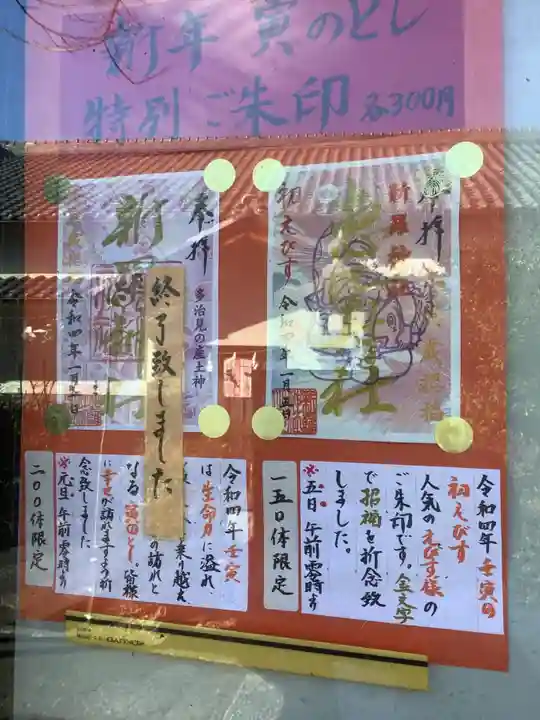 新年 寅のとし
特別 ご朱印 各300円
奉拝
初えびす
新羅神社
令和四年一月五日
奉拝
多治見の産土神
令和四年一月一日
終了致しました
令和四年 壬寅の
初えびす
人気のえびす様の
ご朱印です。金文字
で招福を祈念致
しました。
※五日 午前零時より
一五〇体限定
令和四年 壬寅
は生命力に溢れ
乗り越え
なる 寅のとし。皆様
に幸せが訪れますよう祈
念致しました。
※元旦 午前零時より
二〇〇体限定